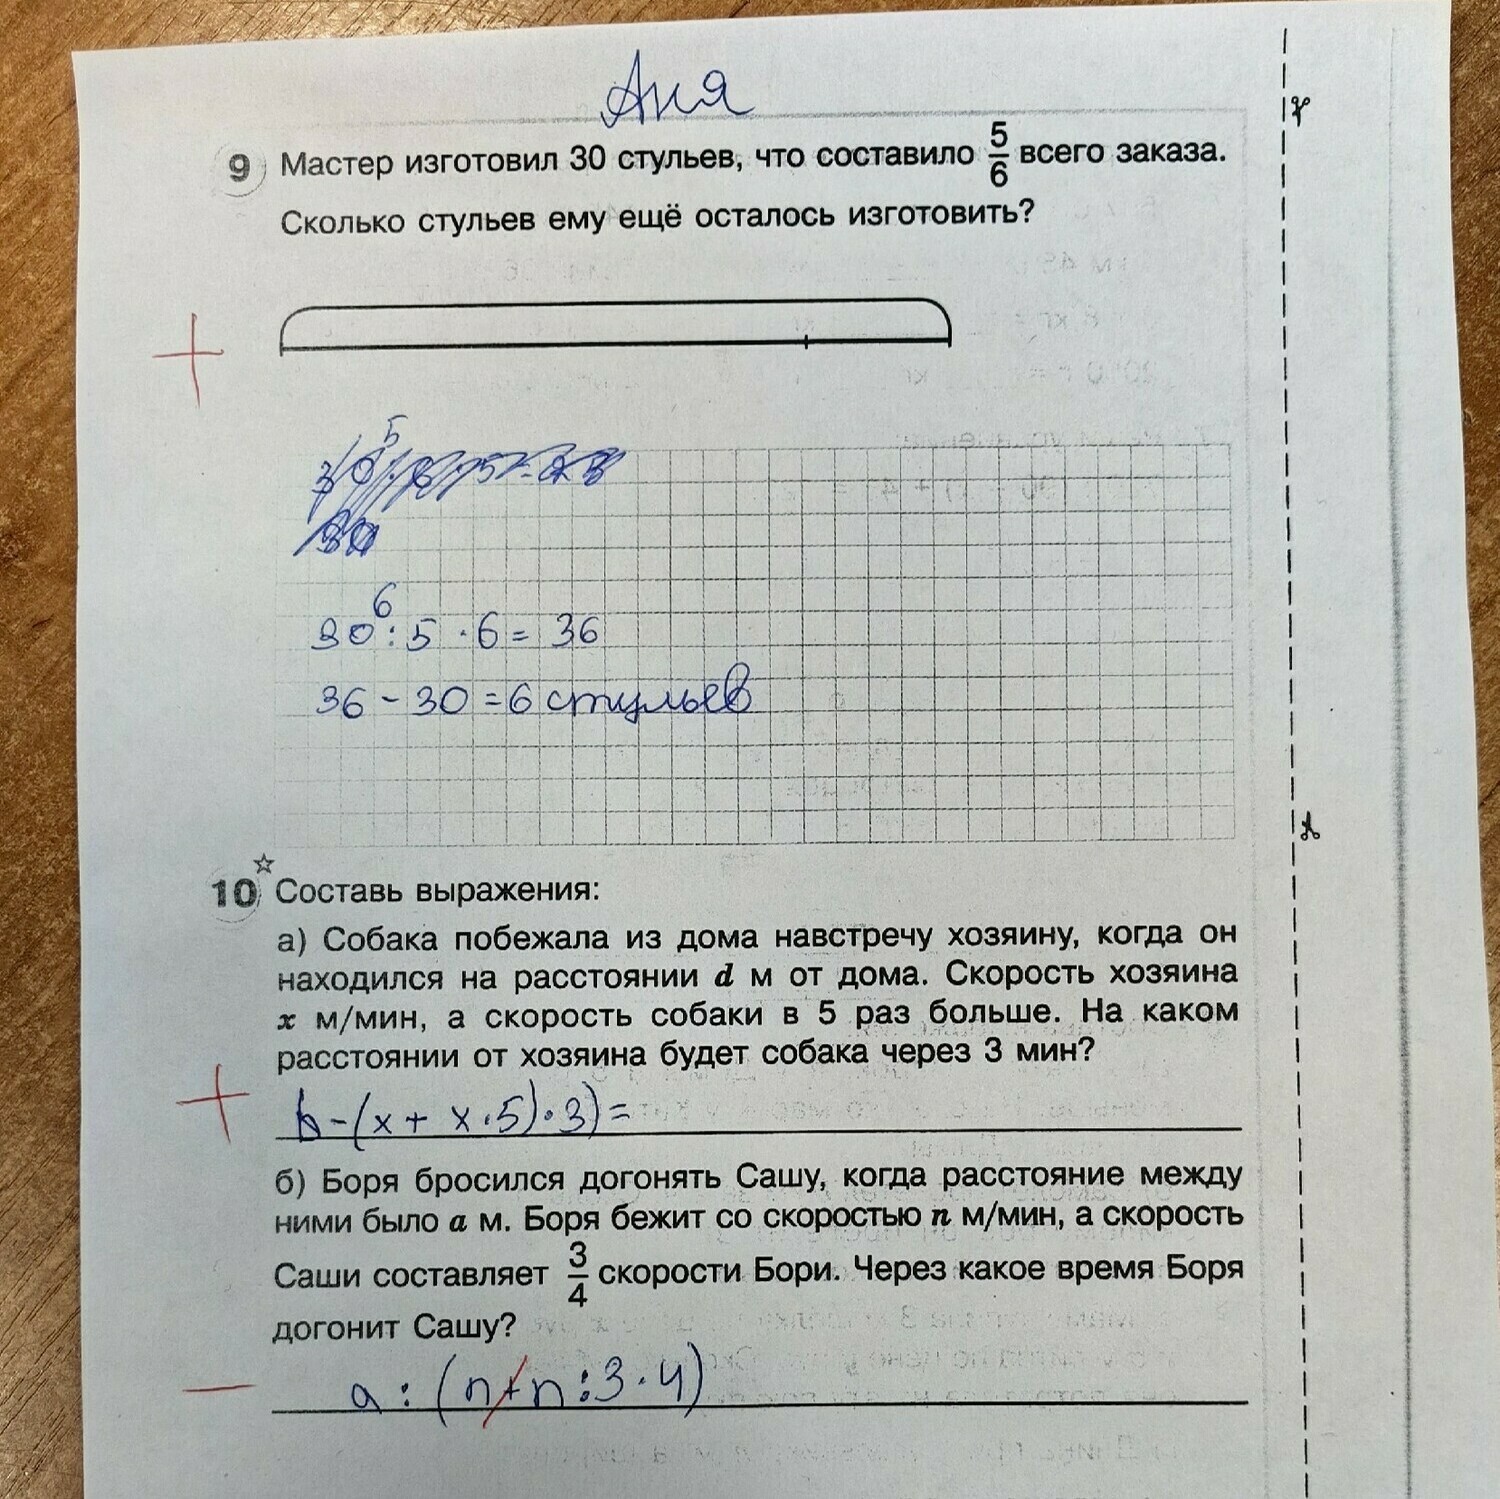 Аня
9 Мастер изготовил 30 стульев, что составило 5/6 всего заказа.
Сколько стульев ему ещё осталось изготовить?
6
30 : 5 · 6 = 36
36 - 30 = 6 стульев
10 Составь выражения:
а) Собака побежала из дома навстречу хозяину, когда он
находился на расстоянии d м от дома. Скорость хозяина
x м/мин, а скорость собаки в 5 раз больше. На каком
расстоянии от хозяина будет собака через 3 мин?
- (x + x · 5) · 3) =
б) Боря бросился догонять Сашу, когда расстояние между
ними было a м. Боря бежит со скоростью n м/мин, а скорость
Саши составляет 3/4 скорости Бори. Через какое время Боря
догонит Сашу?
a : (n + n : 3 · 4)